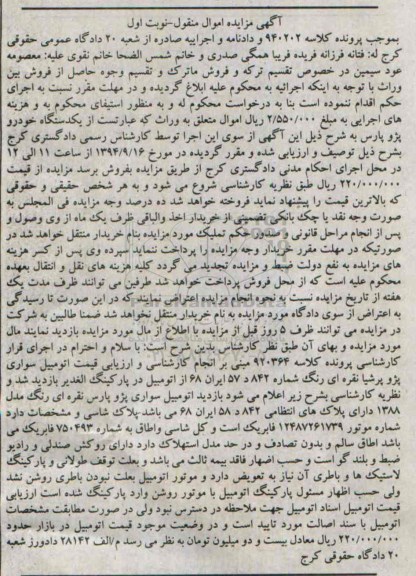 آگهی مزایده اموال منقول-نوبت اول
بموجب پرونده کلاسه ۹۴۰۲۰۲ و دادنامه و اجراییه صادره از شعبه ۲۰ دادگاه عمومی حقوقی
کرج له: فتانه فرزانه فریده فریبا همگی صدری و خانم شمس الضحا خانم نقوی علیه: معصومه
عود سیمین در خصوص تقسیم ترکه و فروش ماترک و تقسیم وجوه حاصل از فروش بین
وراث با توجه به اینکه اجرائیه به محکوم علیه ابلاغ گردیده و در مهلت مقرر نسبت به اجرای
حکم اقدام ننموده است بنا به درخواست محکوم له و به منظور استیفای محکوم به و هزینه
های اجرایی به مبلغ ۲/۵۵۰/۰۰۰ ریال اموال متعلق به وراث که عبارتست از یکدستگاه خودرو
پژو پارس به شرح ذیل این آگهی از سوی این اجرا توسط کارشناس رسمی دادگستری کرج
بشرح ذیل توصیف و ارزیابی شده و مقرر گردیده در مورخ ۱۳۹۴/۹/۱۶ از ساعت ۱۱ الی ۱۲
در محل اجرای احکام مدنی دادگستری کرج از طریق مزایده بفروش برسد مزایده از قیمت
۲۲۰/۰۰۰/۰۰۰ ریال طبق نظریه کارشناسی شروع می شود و به هر شخص حقیقی و حقوقی
که بالاترین قیمت را پیشنهاد نماید فروخته خواهد شد ده درصد وجه مزایده فی المجلس به
صورت وجه نقد یا چک بانکی تضمینی از خریدار اخذ والباقی ظرف یک ماه از وی وصول و
پس از انجام مراحل قانونی و صدور حکم تملیک مورد مزایده بنام خریدار منتقل خواهد شد در
صورتیکه در مهلت مقرر خریدار وجه مزایده را پرداخت ننماید سپرده وی پس از کسر هزینه
های مزایده به نفع دولت ضبط و مزایده تجدید می گردد کلیه هزینه های نقل و انتقال بعهده
محکوم علیه است که از محل فروش پرداخت خواهد شد طرفین می توانند ظرف مدت یک
هفته از تاریخ مزایده نسبت به نحوه انجام مزایده اعتراض نمایند که در این صورت تا رسیدگی
به اعتراض از سوی دادگاه مورد مزایده به نام خریدار منتقل نخواهد شد ضمنا طالبین به شرکت
در مزایده می توانند ظرف ۵ روز قبل از مزایده با اطلاع از مال مورد مزایده بازدید نمایند مال
مورد مزایده و بهای آن طبق نظر کارشناس بدین شرح است: با سلام و احترام در اجرای قرار
کارشناسی پرونده کلاسه ۹۲۰۳۶۴ مبنی بر انجام کارشناسی و ارزیابی قیمت اتومبیل سواری
پژو پرشیا نقره ای رنگ شماره ۸۴۲ د ۵۷ ایران ۶۸ از اتومبیل در پارکینگ الغدیر بازدید شد و
نظریه کارشناسی بشرح زیر اعلام می شود بازدید اتومبیل سواری پژو پارس نقره ای رنگ مدل
۱۳۸۸ دارای پلاک های انتظامی ۸۴۲ د ۵۸ ایران ۶۸ می باشد-پلاک شاسی و مشخصات دارد
شماره موتور ۱۲۴۸۷۲۶۱۷۳۹ فابریک است و کل شاسی واطاق به شماره ۷۵۰۴۹۳ فابریک می
باشد اطاق سالم و بدون تصادف و در حد مدل استهلاک دارد دارای روکش صندلی و رادیو
ضبط و بلند گو است و حسب اضهار فاقد بیمه ثالث می باشد و بعلت توقف طولانی و پارکینگ
لاستیک ها و باطری آن نیاز به تعویض دارد و موتور اتومبیل بعلت نبودن باطری روشن نشد
ولی حسب اظهار مسئول پارکینگ اتومبیل با موتور روشن وارد پارکینگ شده است ارزیابی
قیمت اتومبیل اسناد اتومبیل جهت ملاحظه در دسترس نبود ولی در صورت مطابقت مشخصات
اتومبیل با سند اصالت مورد تایید است و در وضعیت موجود قیمت اتومبیل در بازار حدود
۲۲۰/۰۰۰/۰۰۰ ریال معادل بیست و دو میلیون تومان به نظر می رسد م/الف ۲۸۱۴۲ دادورز شعبه
۲۰ دادگاه حقوقی کرج